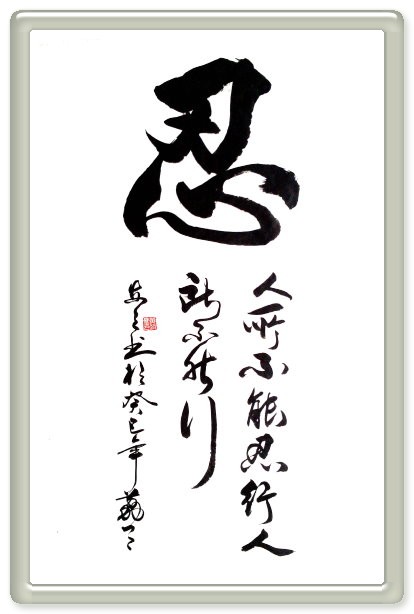 忍
人所不能忍行人
所不能行
书於癸巳年